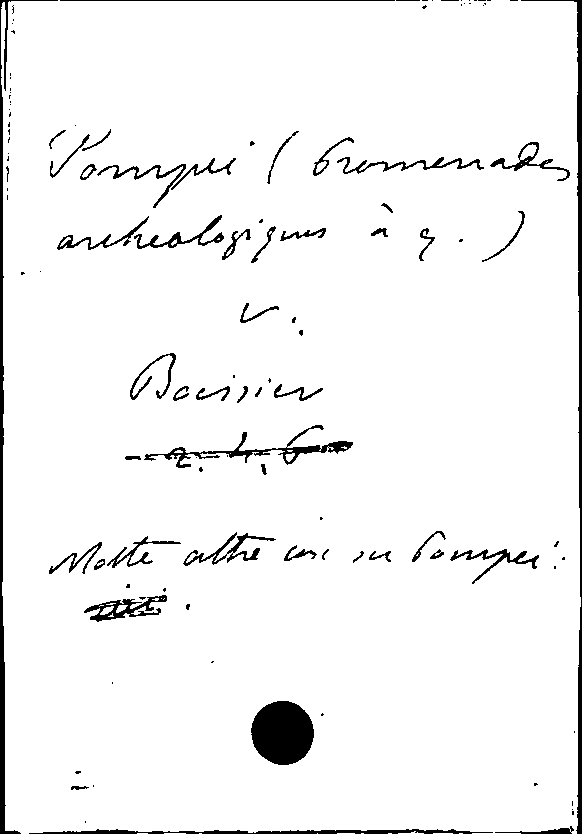 Pompei (Promenades
archeologiques à P.)
v.
Boissier
2. L. 6
Molte altre cose su Pompei: